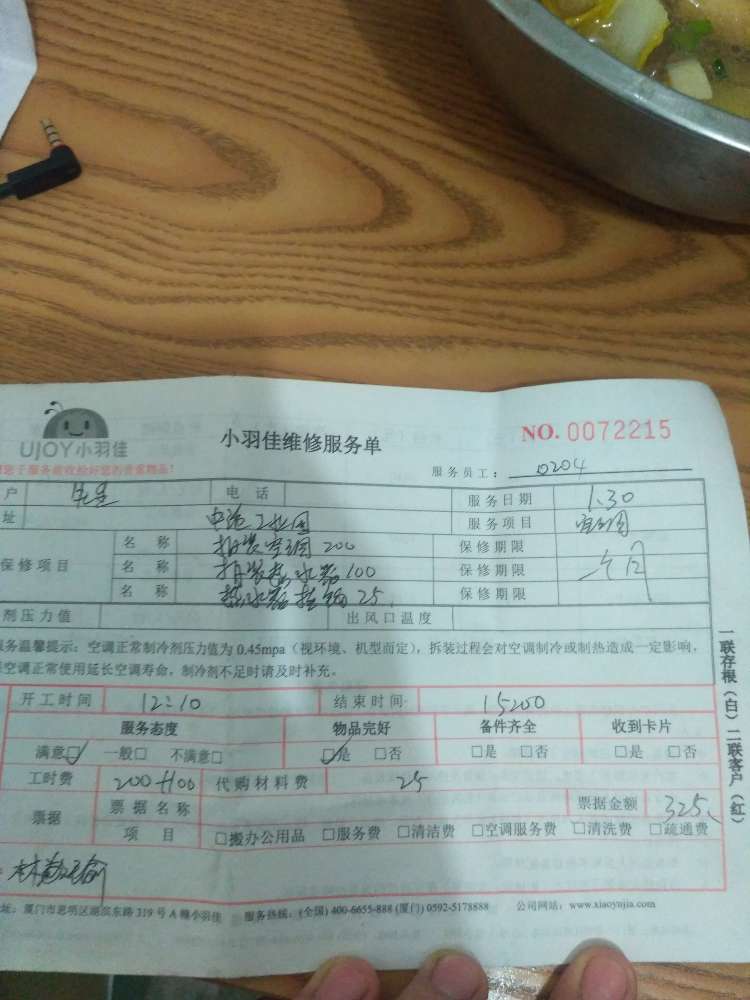 UJOY小羽佳
小羽佳维修服务单
NO. 0072215
服务员工： 0204
户 电 话 服务日期 1.30
址 工业园 服务项目
保修项目 名 称 拆装空调 200 保修期限
名 称 拆装热水器 100 保修期限
名 称 热水器 25 保修期限
剂压力值 出风口温度
务温馨提示：空调正常制冷剂压力值为 0.45mpa（视环境、机型而定），拆装过程会对空调制冷或制热造成一定影响，
空调正常使用延长空调寿命，制冷剂不足时请及时补充。
开工时间 12:10 结束时间
服务态度 物品完好 备件齐全 收到卡片
满意□ 一般□ 不满意□ □是 □否 □是 □否 □是 □否
工时费 200+100 代购材料费 25
票据 票据名称 票据金额 325
项 目 □搬办公用品 □服务费 □清洁费 □空调服务费 □清洗费 □疏通费
址：厦门市思明区湖滨东路 319 号 A 幢小羽佳 服务热线：(全国) 400-6655-888 (厦门) 0592-5178888 公司网站：www.xiaoyujia.com
一联存根（白）二联客户（红）